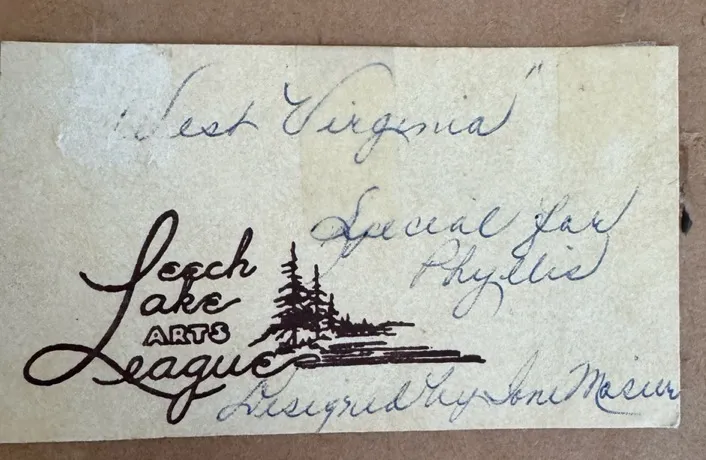 "West Virginia"
Special for
Phyllis
Leech
Lake
ARTS
League
Designed by Ione